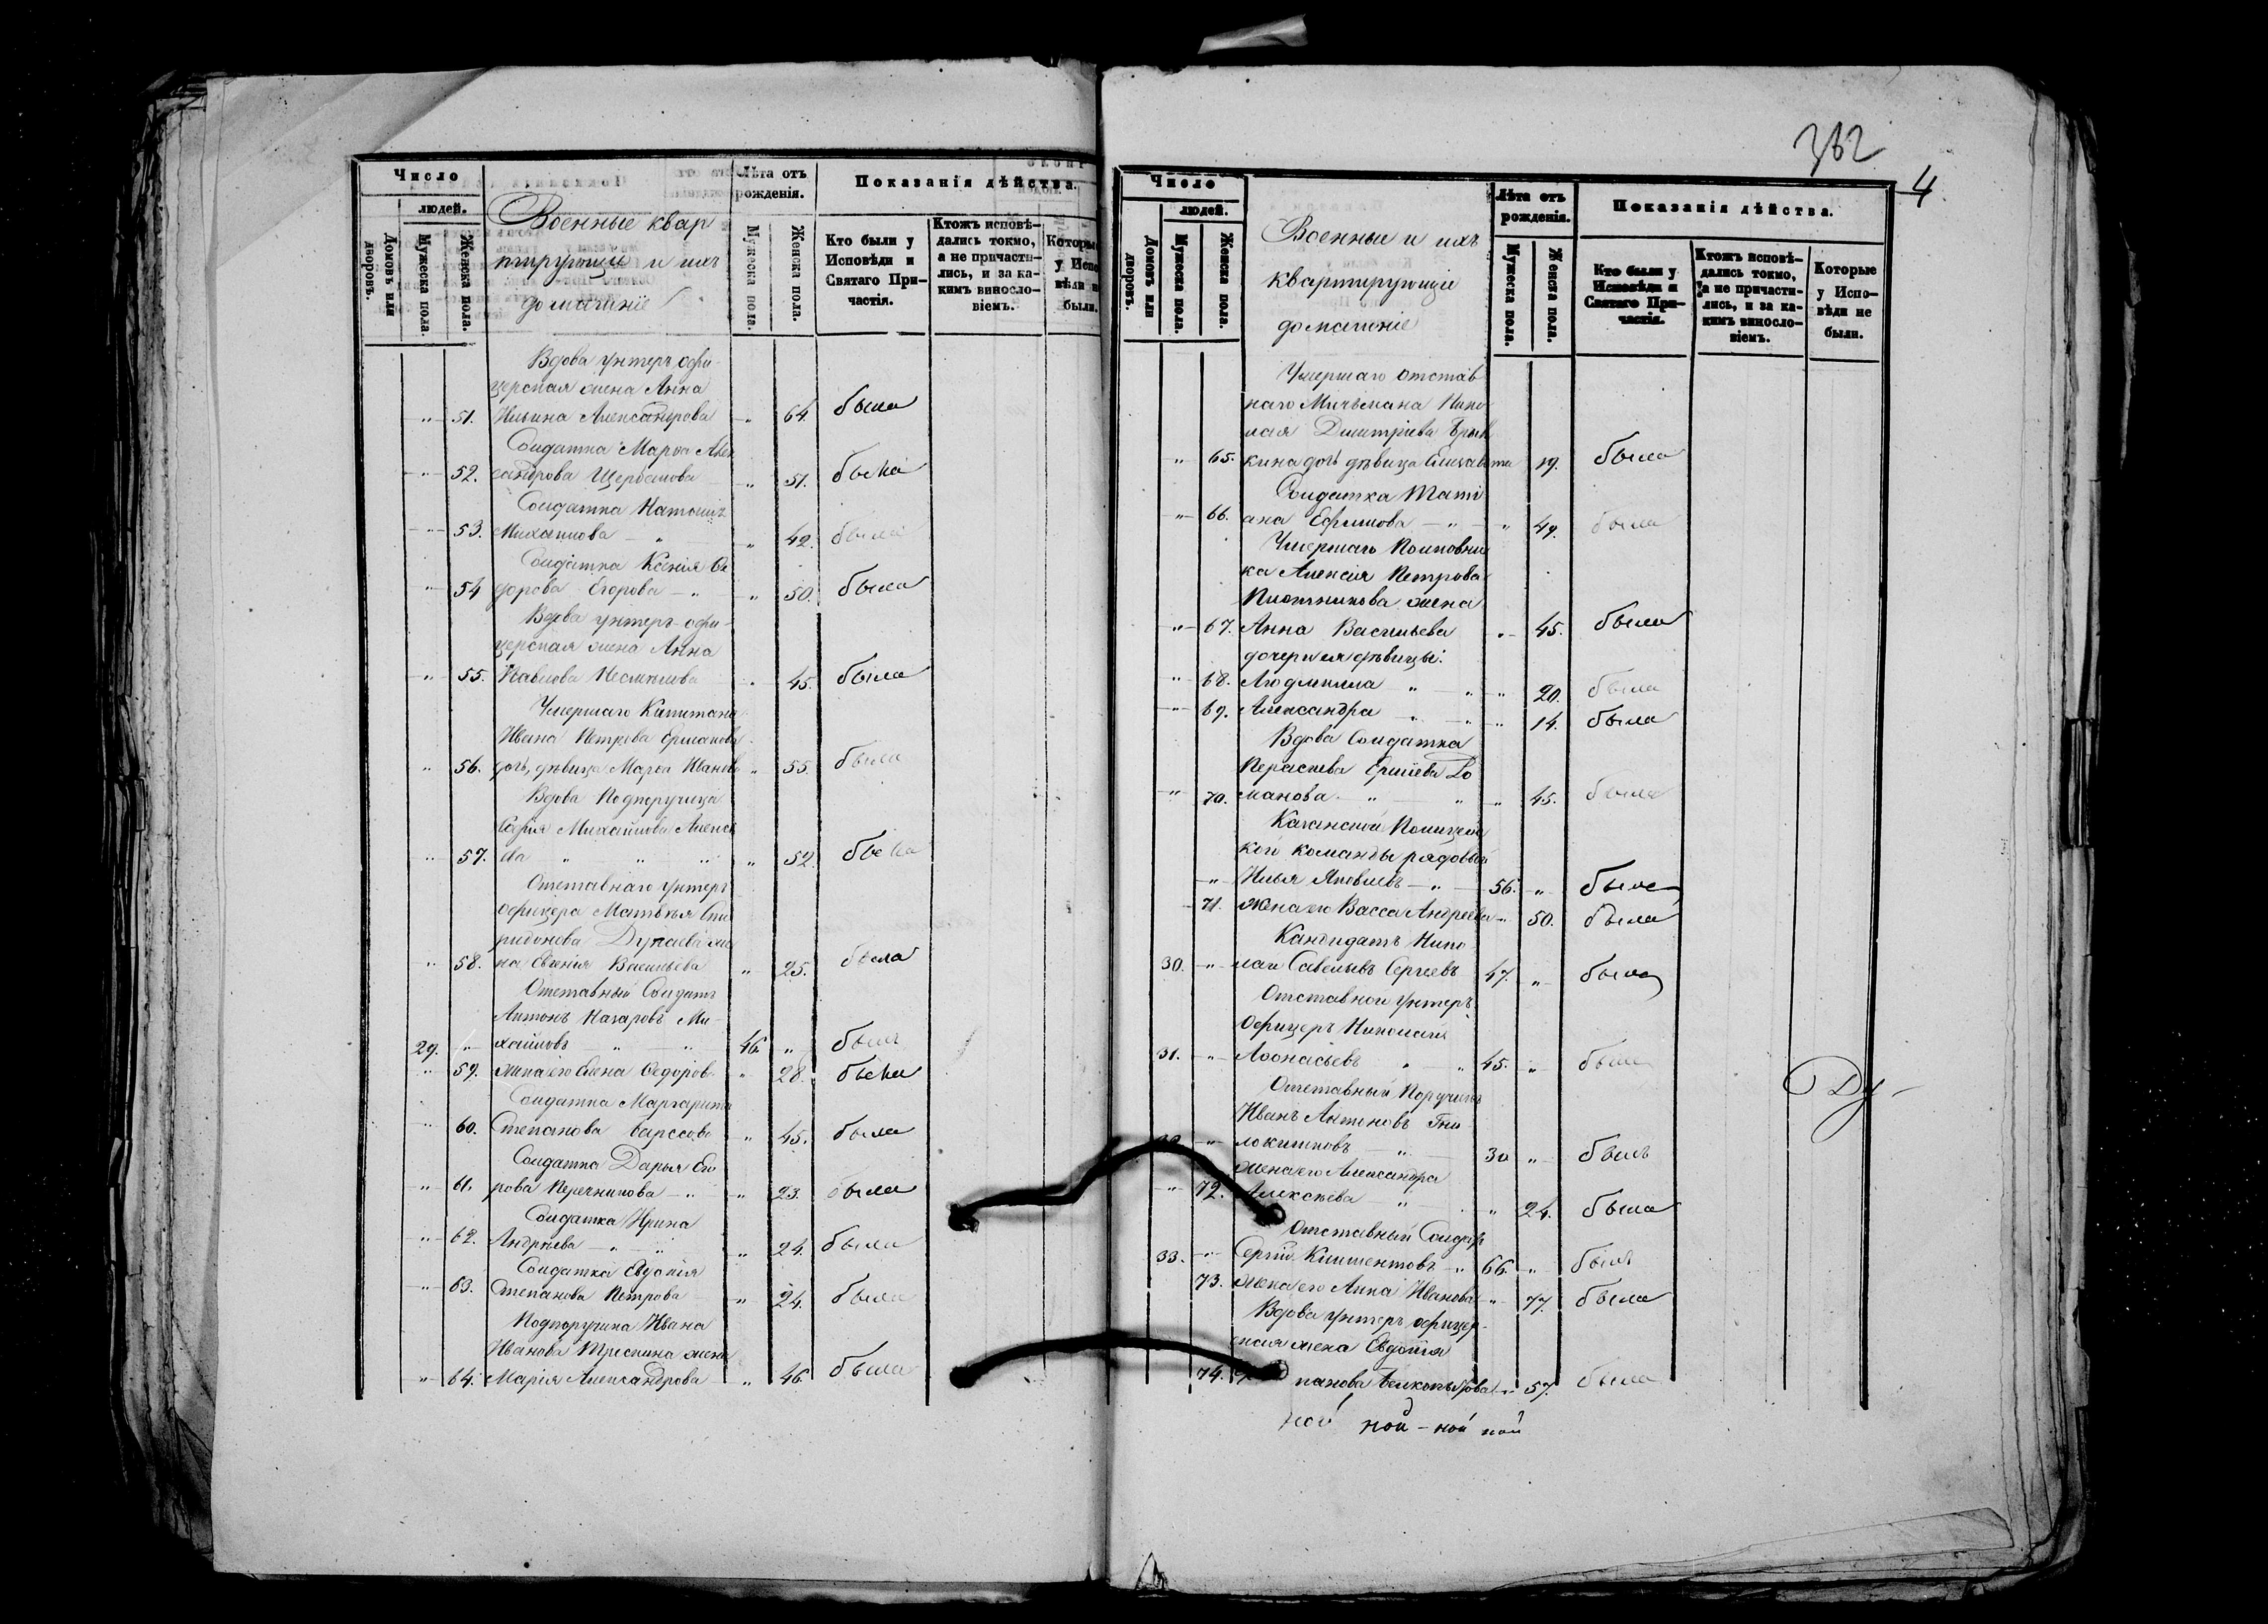 Число
людей.
Домовъ или дворовъ.
Мужеска пола.
Женска пола.
Военные квар
тирующіе и ихъ
домашніе
Лѣта отъ рожденія.
Мужеска пола.
Женска пола.
Показанія дѣйства.
Кто были у Исповѣди и Святаго Причастія.
Ктожъ исповѣ-
дались токмо,
а не причасти-
лись, и за ка-
кимъ виносло-
віемъ.
Которые
у Испо
вѣди не
были.
Вдова унтеръ офи-
церская жена Анна
„ 51. Ильина Александрова „ 64. была
Солдатка Марѳа Алек
„ 52. сандрова Щербакова „ 51. была
Солдатка Наталія
„ 53. Михайлова „ „ 42. была
Солдатка Ксенія Ѳе
„ 54 дорова Егорова „ „ 50. была
Вдова унтеръ-офи-
церская жена Анна
„ 55. Павлова „ 45. была
Умершаго Капитана
Ивана Петрова Ермакова
„ 56. дочь, дѣвица Марѳа Иванов „ 55. была
Вдова Подпоручица
Софія Михайлова Алексѣ
„ 57. ва „ „ „ „ 52. была
Отставнаго унтеръ
офицера Матвѣя Спи
ридонова Дунаева же
„ 58. на Евгенія Васильева „ 25. была
Отставный Солдатъ
Антонъ Назаровъ Ми-
29. „ хайловъ „ „ 46. „ былъ
„ 59. жена его Елена Ѳедоров „ 28. была
Солдатка Маргарита
„ 60. Степанова „ 45. была
Солдатка Дарья Его
„ 61. рова Перечникова „ „ 23. была
Солдатка Ирина
„ 62. Андреева „ „ „ 24. была
Солдатка Евдокія
„ 63. Степанова Петрова „ 24. была
Подпоручика Ивана
Иванова жена
„ 64. Марія Александрова „ 46. была
382
4
Число
людей.
Домовъ или дворовъ.
Мужеска пола.
Женска пола.
Военные и ихъ
квартирующіе
домашніе
Лѣта отъ рожденія.
Мужеска пола.
Женска пола.
Показанія дѣйства.
Кто были у Исповѣди и Святаго Причастія.
Ктожъ исповѣ-
дались токмо,
а не причасти-
лись, и за ка-
кимъ виносло-
віемъ.
Которые
у Испо-
вѣди не
были.
Умершаго отстав
наго Мичьмана Нико
лая Димитріева
„ 65. кина дочь дѣвица Елизавета 19. была
Солдатка Тати
„ 66. ана Ефимова „ „ 49. была
Умершаго Полковни
ка Алексія Петрова
Плотникова жена
„ 67. Анна Васильева „ 45. была
дочери ея дѣвицы:
„ 68. Людмилла „ „ „ 20. была
„ 69. Александра „ „ „ 14. была
Вдова Солдатка
Ро
„ 70. манова „ „ „ 45. была
Казанской Полицей
кой команды рядовый
„ Илья Яковлевъ „ 56. „ былъ
71. жена его Васса Андреева „ 50. была
Кандидатъ Нико
30. „ лай Савельевъ Сергеевъ 47. „ былъ
Отставной унтеръ
офицеръ Николай
31. „ Аѳонасьевъ „ „ 45. „ былъ
Отставный Поручикъ
Иванъ Антиновъ
„ „ 30 „ былъ
жена его Александра
„ 72. Алексѣева „ „ 24. была
Отставный Солдатъ
33. „ Сергій Климентовъ „ 66. „ былъ
73. жена его Анна Иванова „ 77. была
Вдова унтеръ офицер-
ская жена Евдокія
74. „ 57. была
Ду-
ной ной - ной ной